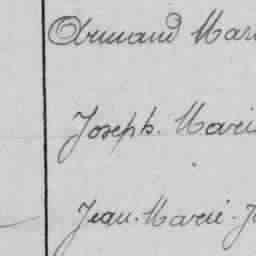 Armand Mari
Joseph. Marie
Jean. Marie. J